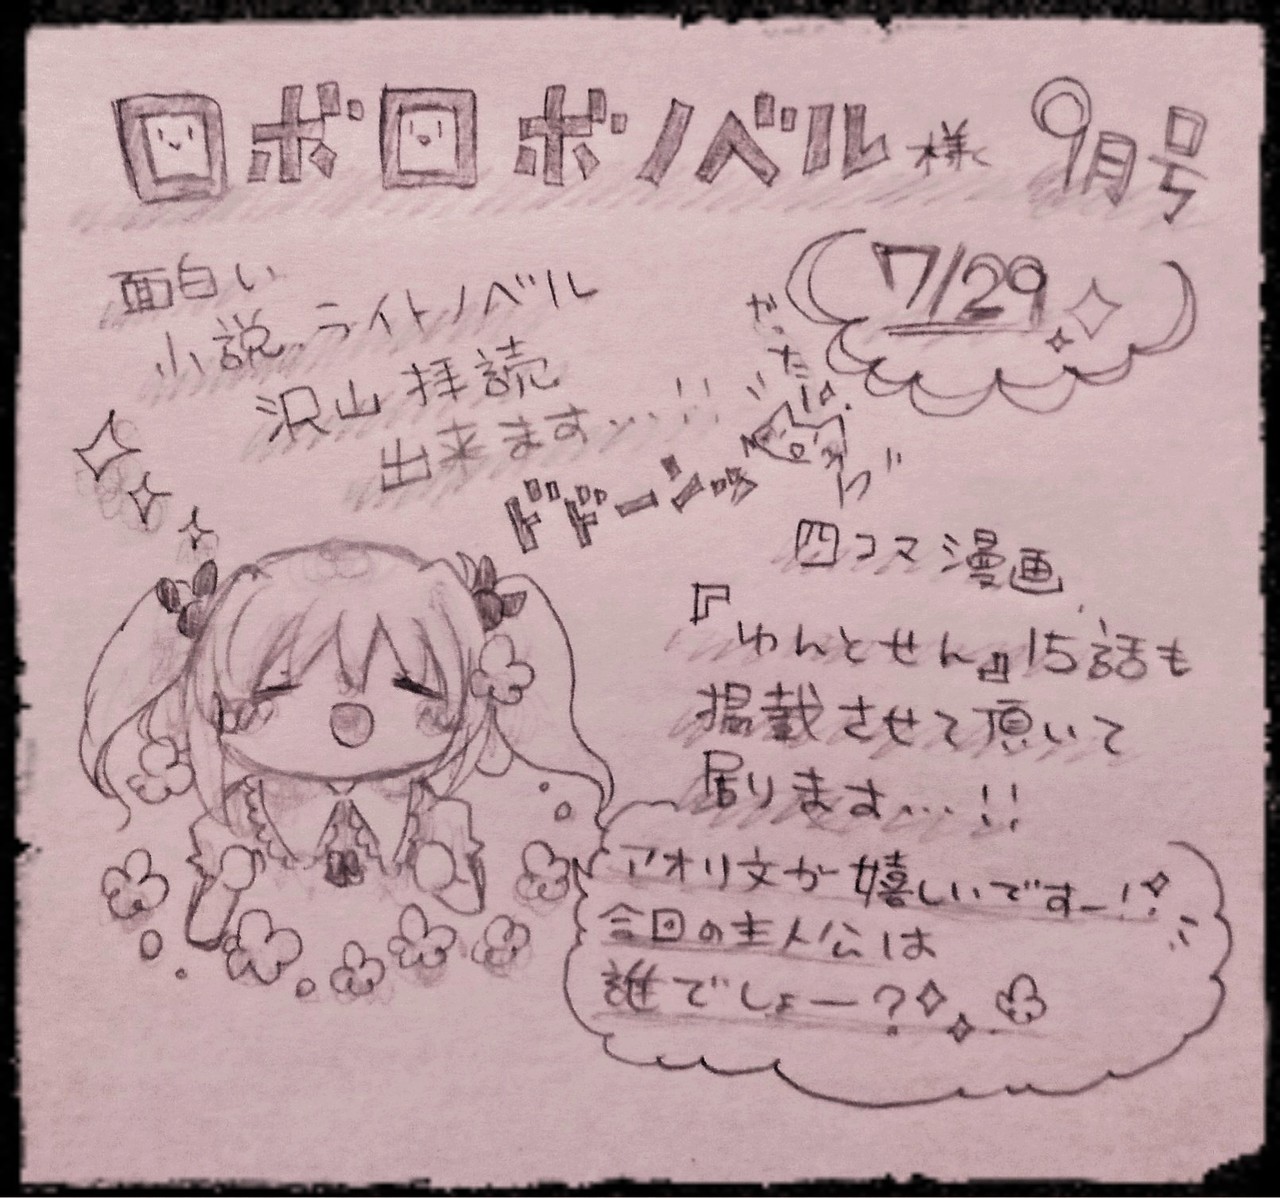 ロボロボノベル様 9月号
7/29
面白い
小説、ライトノベル
沢山拝読
出来ます…!!
ドドーンッ
だった
四コマ漫画
『ゆんとせん』15話も
掲載させて頂いて
居ります…!!
アオリ文が嬉しいですー!
今回の主人公は
誰でしょー?